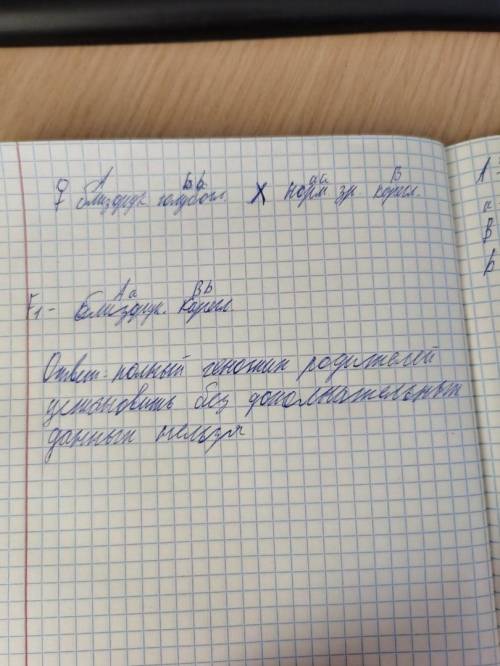 A bb aa B
♀ близорук. голубогл. X норм зр. карегл.
Aa Bb
F₁ - близорук. карегл.
Ответ: полный генотип родителей
установить без дополнательных
данных нельзя
A -
a
B
b